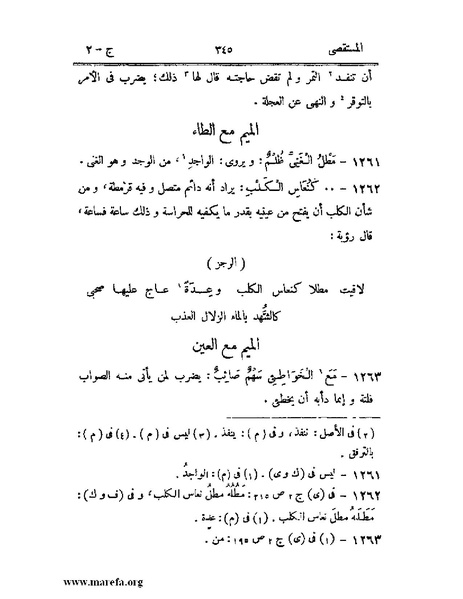 المستقصى ٣٤٥ ج - ٢
أن تنفد ٢ التمر و لم تقض حاجته قال لها ٣ ذلك؛ يضرب فى الأمر
بالتوقر ٤ و النهى عن العجلة .
الميم مع الطاء
١٢٦١ - مَطْلُ الْغَنِىِّ ظُلْمٌ : و يروى : الواجدِ ١، من الوجد و هو الغنى .
١٢٦٢ - ٠٠ كَنُعَاسِ الْكَلْبِ : يراد أنه دائم متصل و فيه قرمطة، و من
شأن الكلب أن يفتح من عينيه بقدر ما يكفيه للحراسة و ذلك ساعة فساعة،
قال رؤبة :
( الرجز )
لاقيت مطلا كنعاس الكلب وعِدّةً ١ عاج عليها صحبى
كالشُّهد بالماء الزلال العذب
الميم مع العين
١٢٦٣ - مَعَ ١ الْخَوَاطِئِ سَهْمٌ صَائِبٌ : يضرب لمن يأتى منه الصواب
فلتة و إنما دأبه أن يخطئ .
(٢) فى الأصل : تنفذ، و فى (م) : ينفذ . (٣) ليس فى (م) . (٤) فى (م) :
بالترفق .
١٢٦١ - ليس فى (ك و ى) . (١) فى (م) : الواجدُ .
١٢٦٢ - فى (ى) ج ٢ ص ٢١٥ : مَطْلُهُ مطلُ نعاس الكلب، و فى (ف و ك) :
مَطَلَهُ مطلَ نعاس الكلب . (١) فى (م) : عِدة .
١٢٦٣ - (١) فى (ى) ج ٢ ص ١٩٥ : من .
www.marefa.org